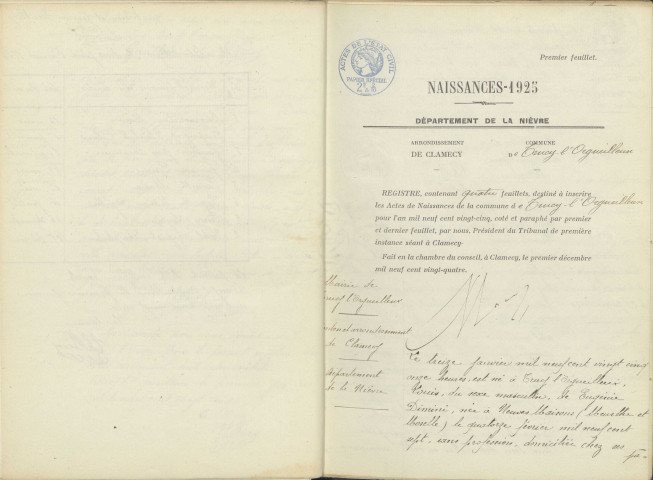 Premier feuillet.
ACTES DE L'ÉTAT CIVIL
PAPIER SPÉCIAL
NAISSANCES-1925
DÉPARTEMENT DE LA NIÈVRE
ARRONDISSEMENT
DE CLAMECY
COMMUNE
De Trucy-l'Orgueilleux
REGISTRE, contenant quatre feuillets, destiné à inscrire
les Actes de Naissances de la commune de Trucy-l'Orgueilleux
pour l'an mil neuf cent vingt-cinq, coté et paraphé par premier
et dernier feuillet, par nous, Président du Tribunal de première
instance séant à Clamecy.
Fait en la chambre du conseil, à Clamecy, le premier décembre
mil neuf cent vingt-quatre.
Mairie de
Trucy l'Orgueilleux
arrondissement
de Clamecy
Département
de la Nièvre
Le treize janvier mil neuf cent vingt cinq
onze heures, est né à Trucy l'Orgueilleux,
Louis, du sexe masculin, de Eugénie
née à Neuves Maisons (Meurthe et
Moselle) le quatorze février mil neuf cent
sept, sans profession, domiciliée chez ses pa-